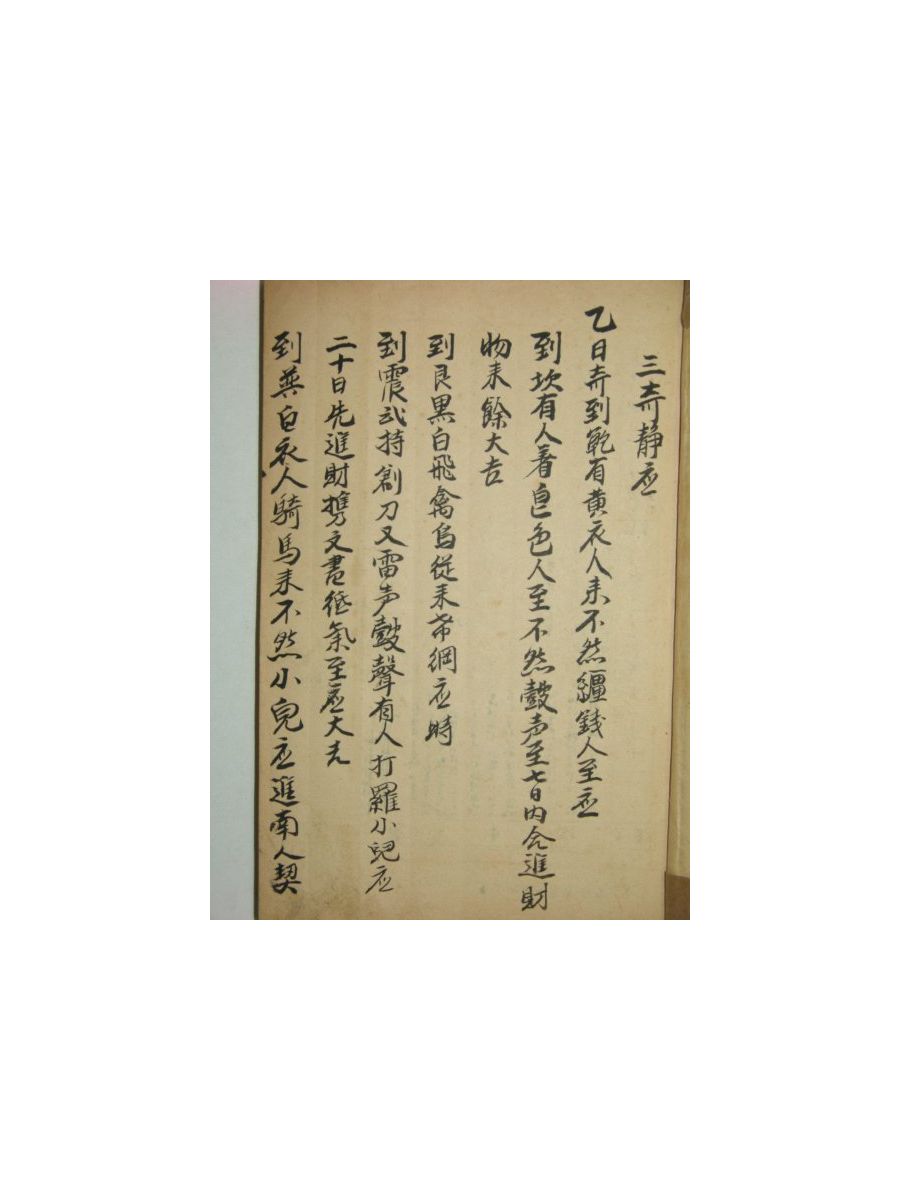 三奇静应
乙日奇到乾有黄衣人来不然繮錢人至应
到坎有人着皂色人至不然鼓声至七日内合進財
物来餘大吉
到艮黑白飛禽鳥從来希網应時
到震武持創刀又雷声鼓聲有人打羅小兒应
二十日先進財携文書
氣至应大吉
到巽白衣人騎馬来不然小兒应進南人契